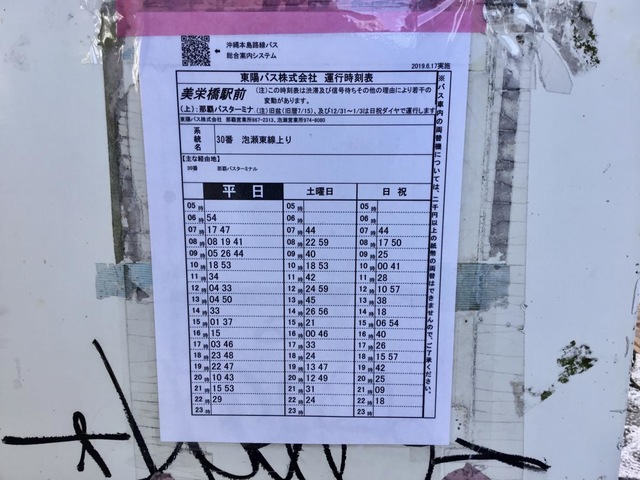 沖縄本島路線バス
総合案内システム
2019.6.17実施
東陽バス株式会社 運行時刻表
美栄橋駅前
(注)この時刻表は渋滞及び信号待ちその他の理由により若干の変動があります。
(上り) 那覇バスターミナ
(注)旧盆(旧暦7/15)、及び12/31～1/3は日祝ダイヤで運行します
東陽バス株式会社 那覇営業所867-2313、泡瀬営業所974-8080
系統名 30番 泡瀬東線上り
【主な経由地】
30番 那覇バスターミナル
平日 土曜日 日祝
05時 05時 05時
06時 54 06時 06時
07時 17 47 07時 44 07時 44
08時 08 19 41 08時 22 59 08時 17 50
09時 05 26 44 09時 40 09時 25
10時 18 53 10時 18 53 10時 00 41
11時 34 11時 42 11時 28
12時 04 33 12時 24 59 12時 10 57
13時 04 50 13時 45 13時 38
14時 33 14時 26 56 14時 18
15時 01 37 15時 21 15時 06 54
16時 15 16時 00 46 16時 40
17時 03 46 17時 33 17時 26
18時 23 48 18時 24 18時 15 57
19時 22 47 19時 13 47 19時 42
20時 10 43 20時 12 49 20時 25
21時 15 53 21時 31 21時 09
22時 29 22時 24 22時 18
23時 23時 23時
※バス車内の両替機については、二千円以上の紙幣の両替はできませんので、ご了承ください。